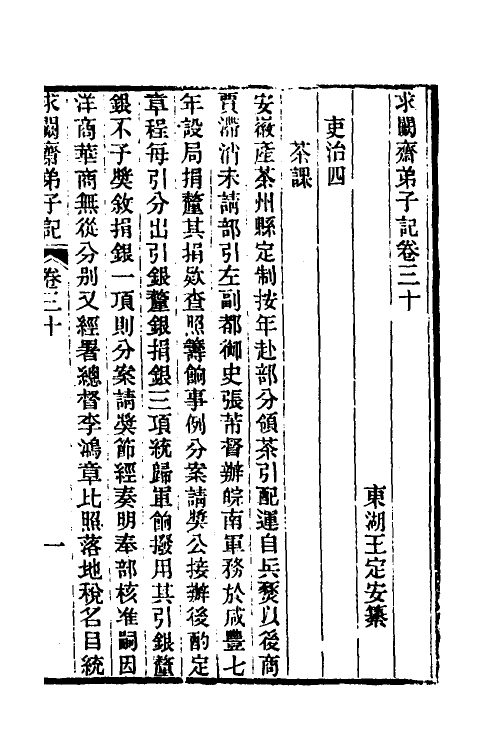 求闕齋弟子記卷三十
東湖王定安纂
吏治四
茶課
安徽產茶州縣定制按年赴部分領茶引配運自兵燹以後商
賈滯消未請部引左副都御史張芾督辦皖南軍務於咸豐七
年設局捐釐其捐欵查照籌餉事例分案請獎公接辦後酌定
章程每引分出引銀釐銀捐銀三項統歸軍餉撥用其引銀釐
銀不予獎敘捐銀一項則分案請獎節經奏明奉部核准嗣因
洋商華商無從分別又經署總督李鴻章比照落地稅名目統
求闕齋弟子記 卷三十 一